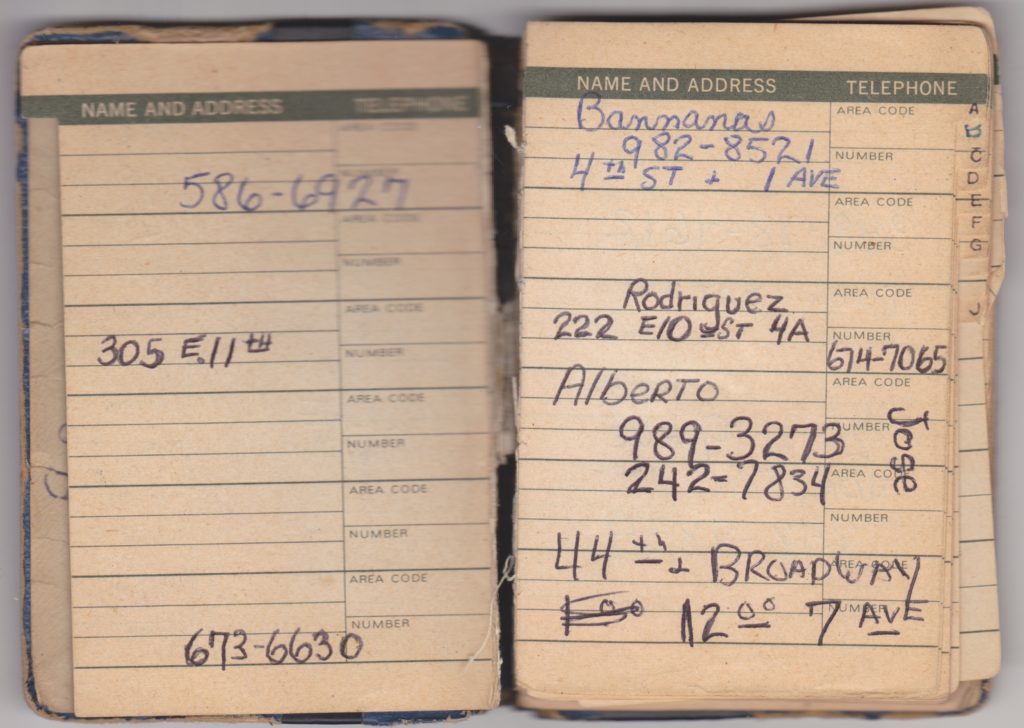 NAME AND ADDRESS TELEPHONE
AREA CODE
586-6927
AREA CODE
NUMBER
AREA CODE
305 E.11th NUMBER
AREA CODE
NUMBER
AREA CODE
NUMBER
AREA CODE
NUMBER
673-6630
NAME AND ADDRESS TELEPHONE
Bannanas AREA CODE
982-8521 NUMBER
4th ST + 1 AVE
AREA CODE
NUMBER
Rodriguez AREA CODE
222 E10 ST 4A NUMBER
674-7065
Alberto AREA CODE
989-3273 NUMBER
242-7834 AREA CODE
Jose
NUMBER
44th + BROADWAY AREA CODE
12 00 7 AVE NUMBER
A
B
C
D
E
F
G
J